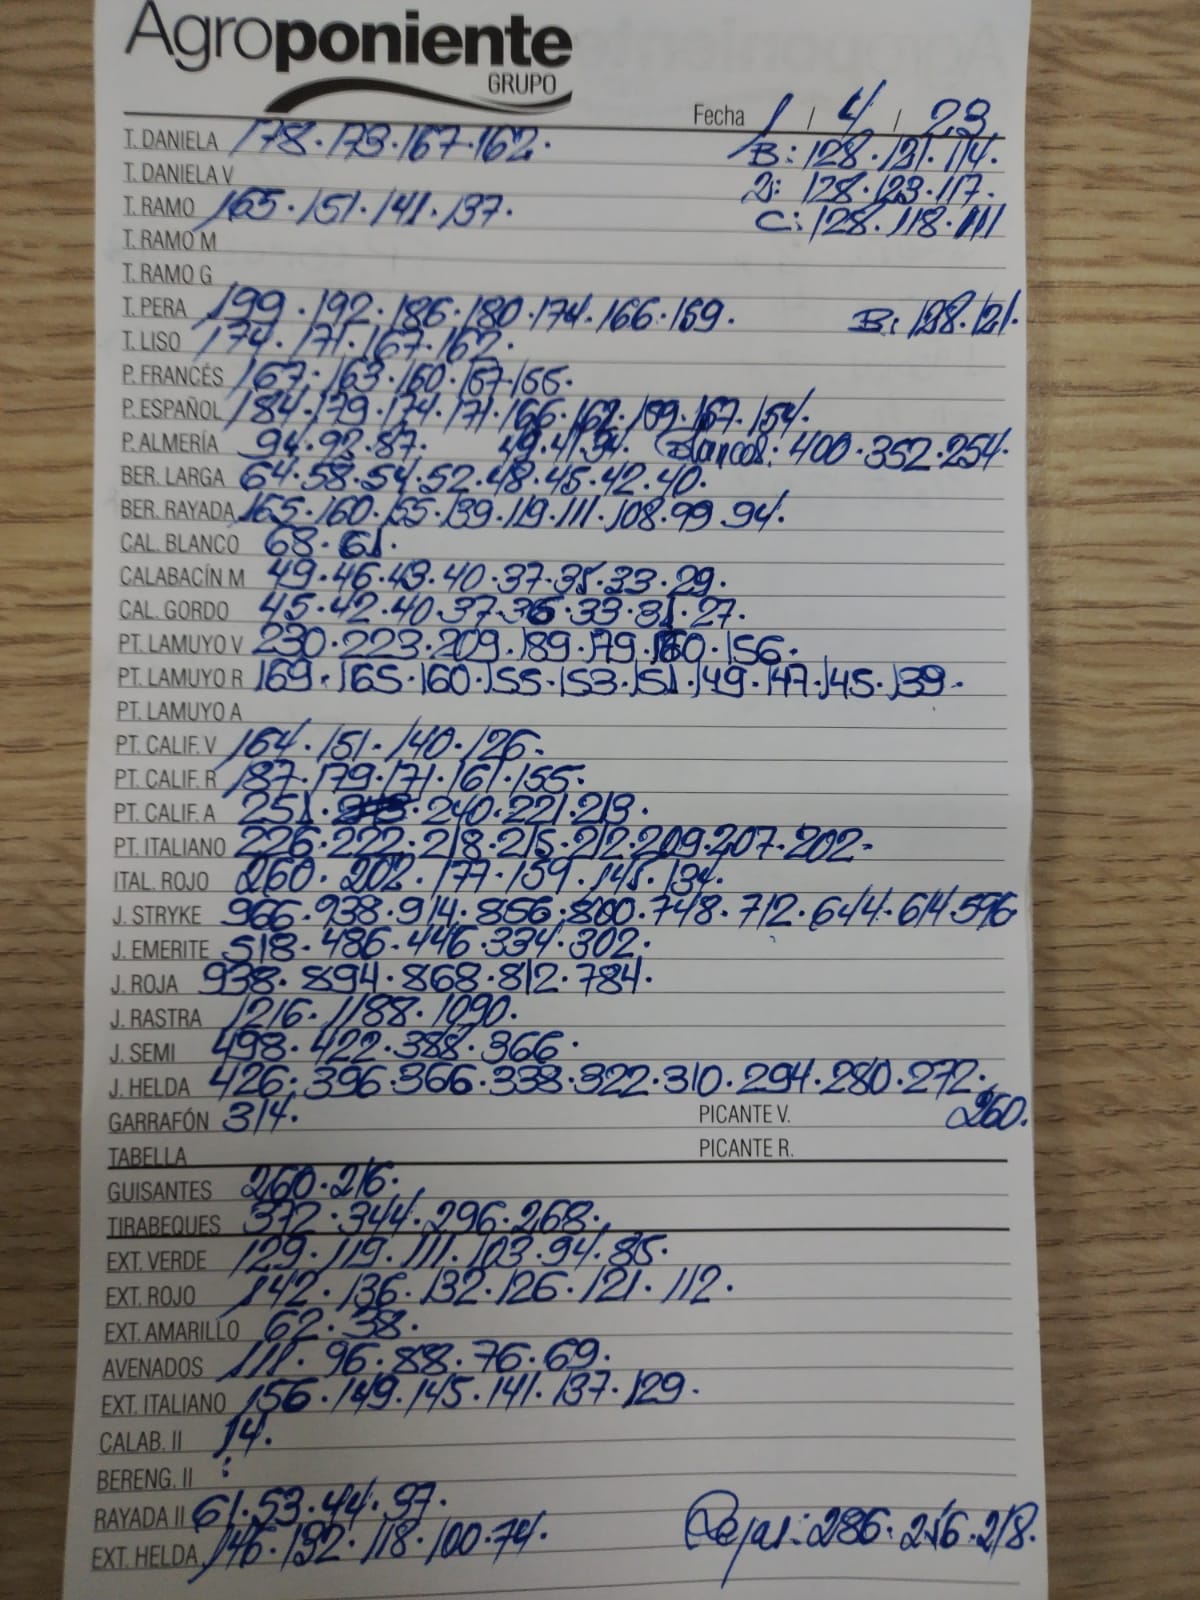 Agroponiente
GRUPO
Fecha 1 / 4 / 23
T. DANIELA 178·173·167·162· B: 128·121·114·
T. DANIELA V D: 128·123·117·
T. RAMO 165·151·141·137· C: 128·118·111
T. RAMO M
T. RAMO G
T. PERA 199·192·186·180·174·166·159· B: 128·121·
T. LISO 174·171·167·162·
P. FRANCÉS 167·163·160·157·155·
P. ESPAÑOL 184·179·174·171·166·162·159·157·154·
P. ALMERÍA 94·92·87· 49·41·34· Blancos: 400·352·254·
BER. LARGA 64·58·54·52·48·45·42·40·
BER. RAYADA 165·160·155·139·119·111·108·99·94·
CAL. BLANCO 68·61·
CALABACÍN M 49·46·43·40·37·35·33·29·
CAL. GORDO 45·42·40·37·36·33·31·27·
PT. LAMUYO V 230·223·209·189·179·160·156·
PT. LAMUYO R 169·165·160·155·153·151·149·147·145·139·
PT. LAMUYO A
PT. CALIF. V 164·151·140·126·
PT. CALIF. R 187·179·171·161·155·
PT. CALIF. A 251· ·240·221·213·
PT. ITALIANO 226·222·218·215·212·209·207·202·
ITAL. ROJO 260·202·177·159·145·134·
J. STRYKE 966·938·914·856·800·748·712·644·614·596
J. EMERITE 518·486·446·334·302·
J. ROJA 938·894·868·812·784·
J. RASTRA 1216·1188·1090·
J. SEMI 498·422·388·366·
J. HELDA 426·396·366·338·322·310·294·280·272·
GARRAFÓN 314· PICANTE V. 260·
TABELLA PICANTE R.
GUISANTES 260·216·
TIRABEQUES 372·344·296·268·
EXT. VERDE 129·119·111·103·94·85·
EXT. ROJO 142·136·132·126·121·112·
EXT. AMARILLO 62·38·
AVENADOS 111·96·88·76·69·
EXT. ITALIANO 156·149·145·141·137·129·
CALAB. II 14·
BERENG. II :
RAYADA II 61·53·44·37·
EXT. HELDA 146·132·118·100·74· Rojas: 286·256·218·